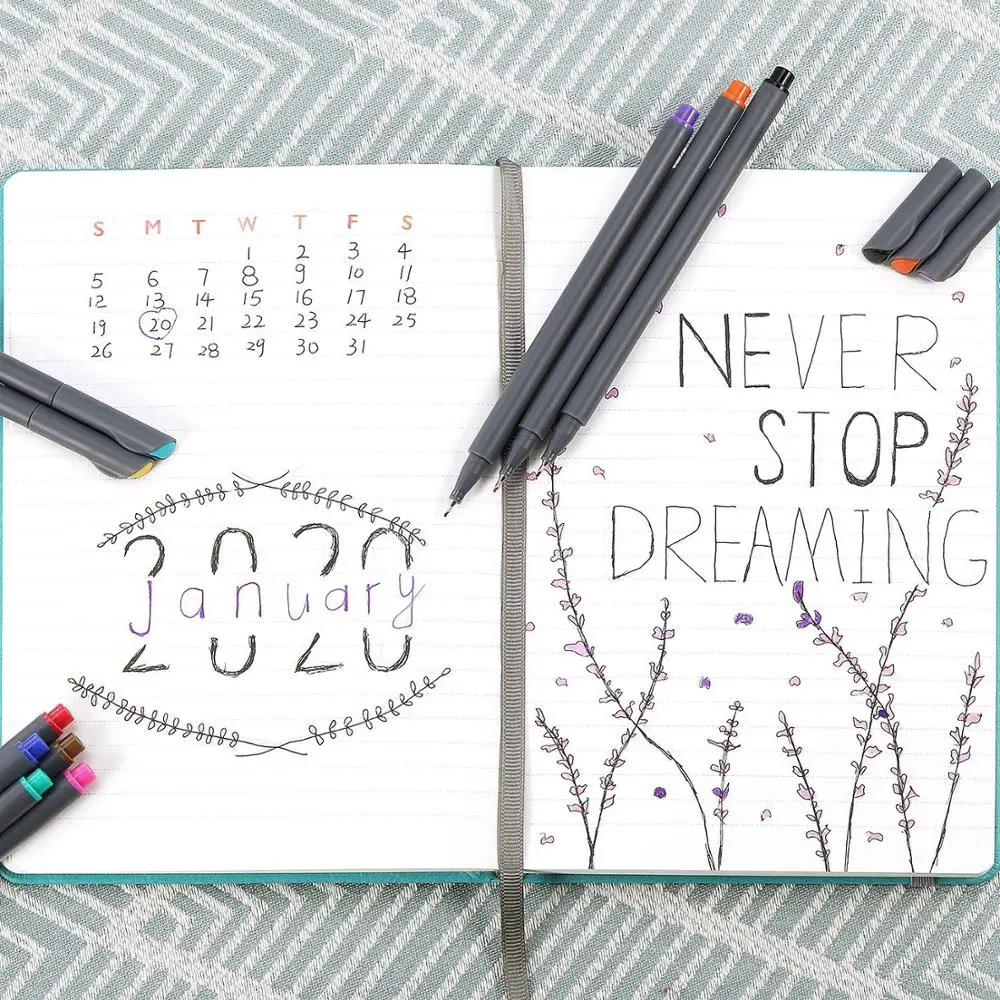 S M T W T F S
1 2 3 4
5 6 7 8 9 10 11
12 13 14 15 16 17 18
19 20 21 22 23 24 25
26 27 28 29 30 31
2020
january
2020
NEVER
STOP
DREAMING